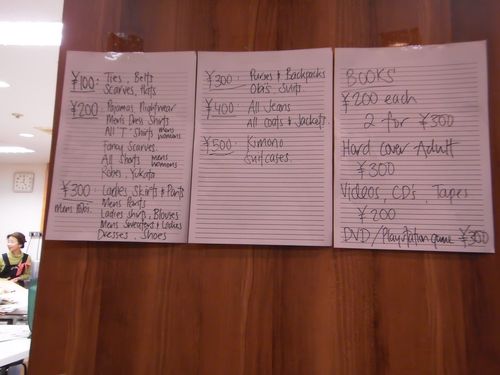 ¥100 · Ties, Belts
Scarves, Hats
¥200 · Pajamas, Nightwear
Men's Dress Shirts
All "T" Shirts mens womens
Fancy Scarves
All Shorts mens womens
Robes, Yukata
¥300 · Ladies Skirts & Pants
Mens Pants
Ladies shirts, Blouses
Mens Sweaters & Ladies
Dresses, Shoes
¥300 · Purses & Backpacks
Obi's Suits
¥400 · All Jeans
All Coats & Jackets
¥500 · Kimono
Suitcases
BOOKS
¥200 each
2 for ¥300
Hard Cover Adult
¥300
Videos, CD's, Tapes
¥200
DVD/Playstation game ¥300